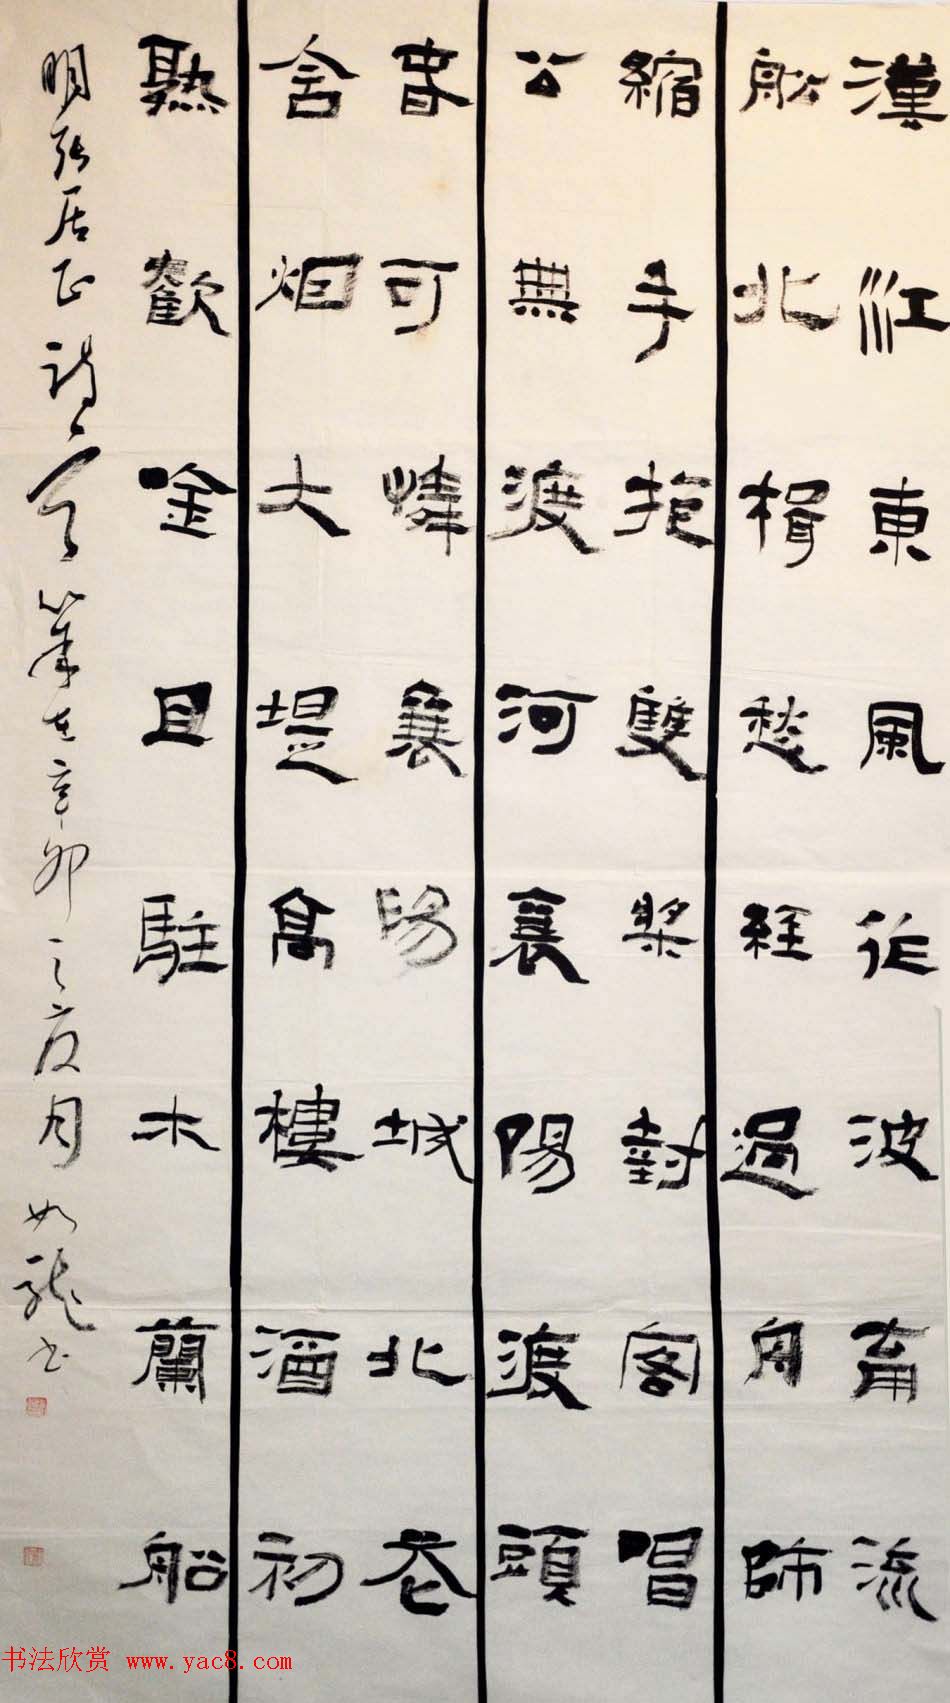 漢江東風作波流
船北楫愁經過舟師
縮手抱雙槳對客唱
公無渡河襄陽渡頭
春可憐襄陽城北花
含烟大堤高樓酒初
熟歡唫且駐木蘭船
明張居正詩辛卯之夏月如龍书
书法欣赏 www.yac8.com